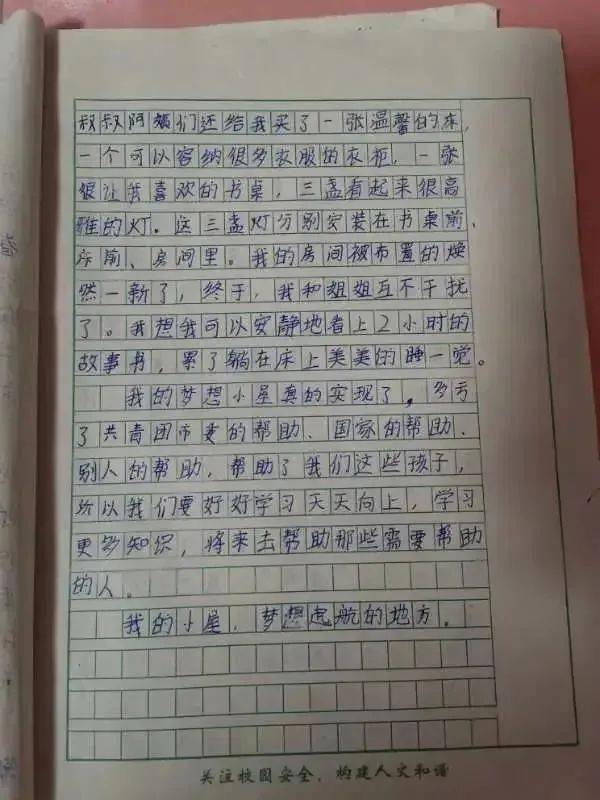 叔叔阿姨们还给我买了一张温馨的床，
一个可以容纳很多衣服的衣柜，一张
很让我喜欢的书桌，三盏看起来很高
雅的灯。这三盏灯分别安装在书桌前、
床前、房间里。我的房间被布置的焕
然一新了，终于，我和姐姐互不干扰
了。我想我可以安静地看上2小时的
故事书，累了躺在床上美美的睡一觉。
我的梦想小屋真的实现了，多亏
了共青团市委的帮助、国家的帮助、
别人的帮助，帮助了我们这些孩子，
所以我们要好好学习天天向上，学习
更多知识，将来去帮助那些需要帮助
的人。
我的小屋，梦想起航的地方。
关注校园安全，构建人文和谐